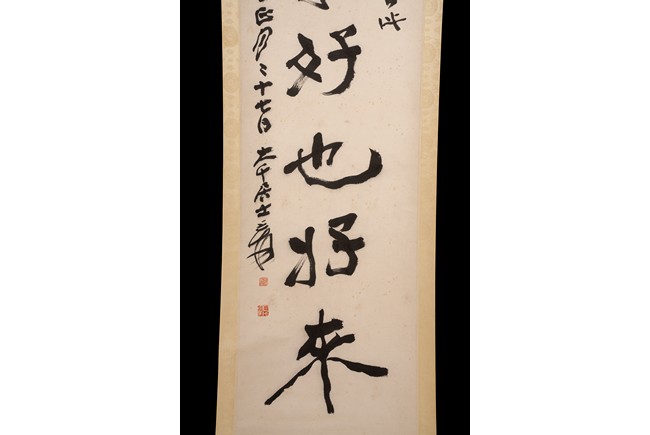 此
好也好來
正月二十七日 大千居士爰